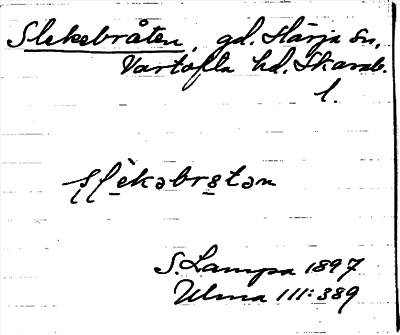 Slekebråten, gd. Härja sn,
Vartofta hd. Skarab.
l.
sl̀ekabrstan
S. Lampa 1897
Ulma 111:389